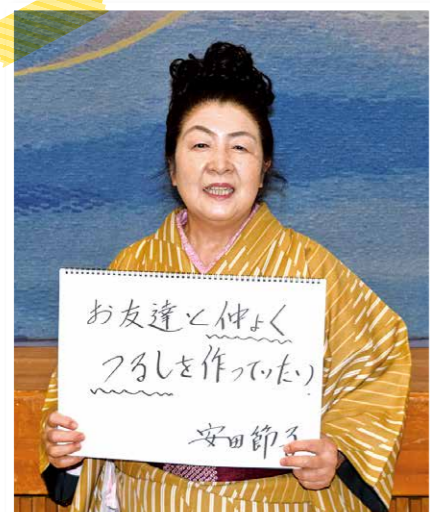 お友達と仲よく
つるしを作っていたい
安田節子